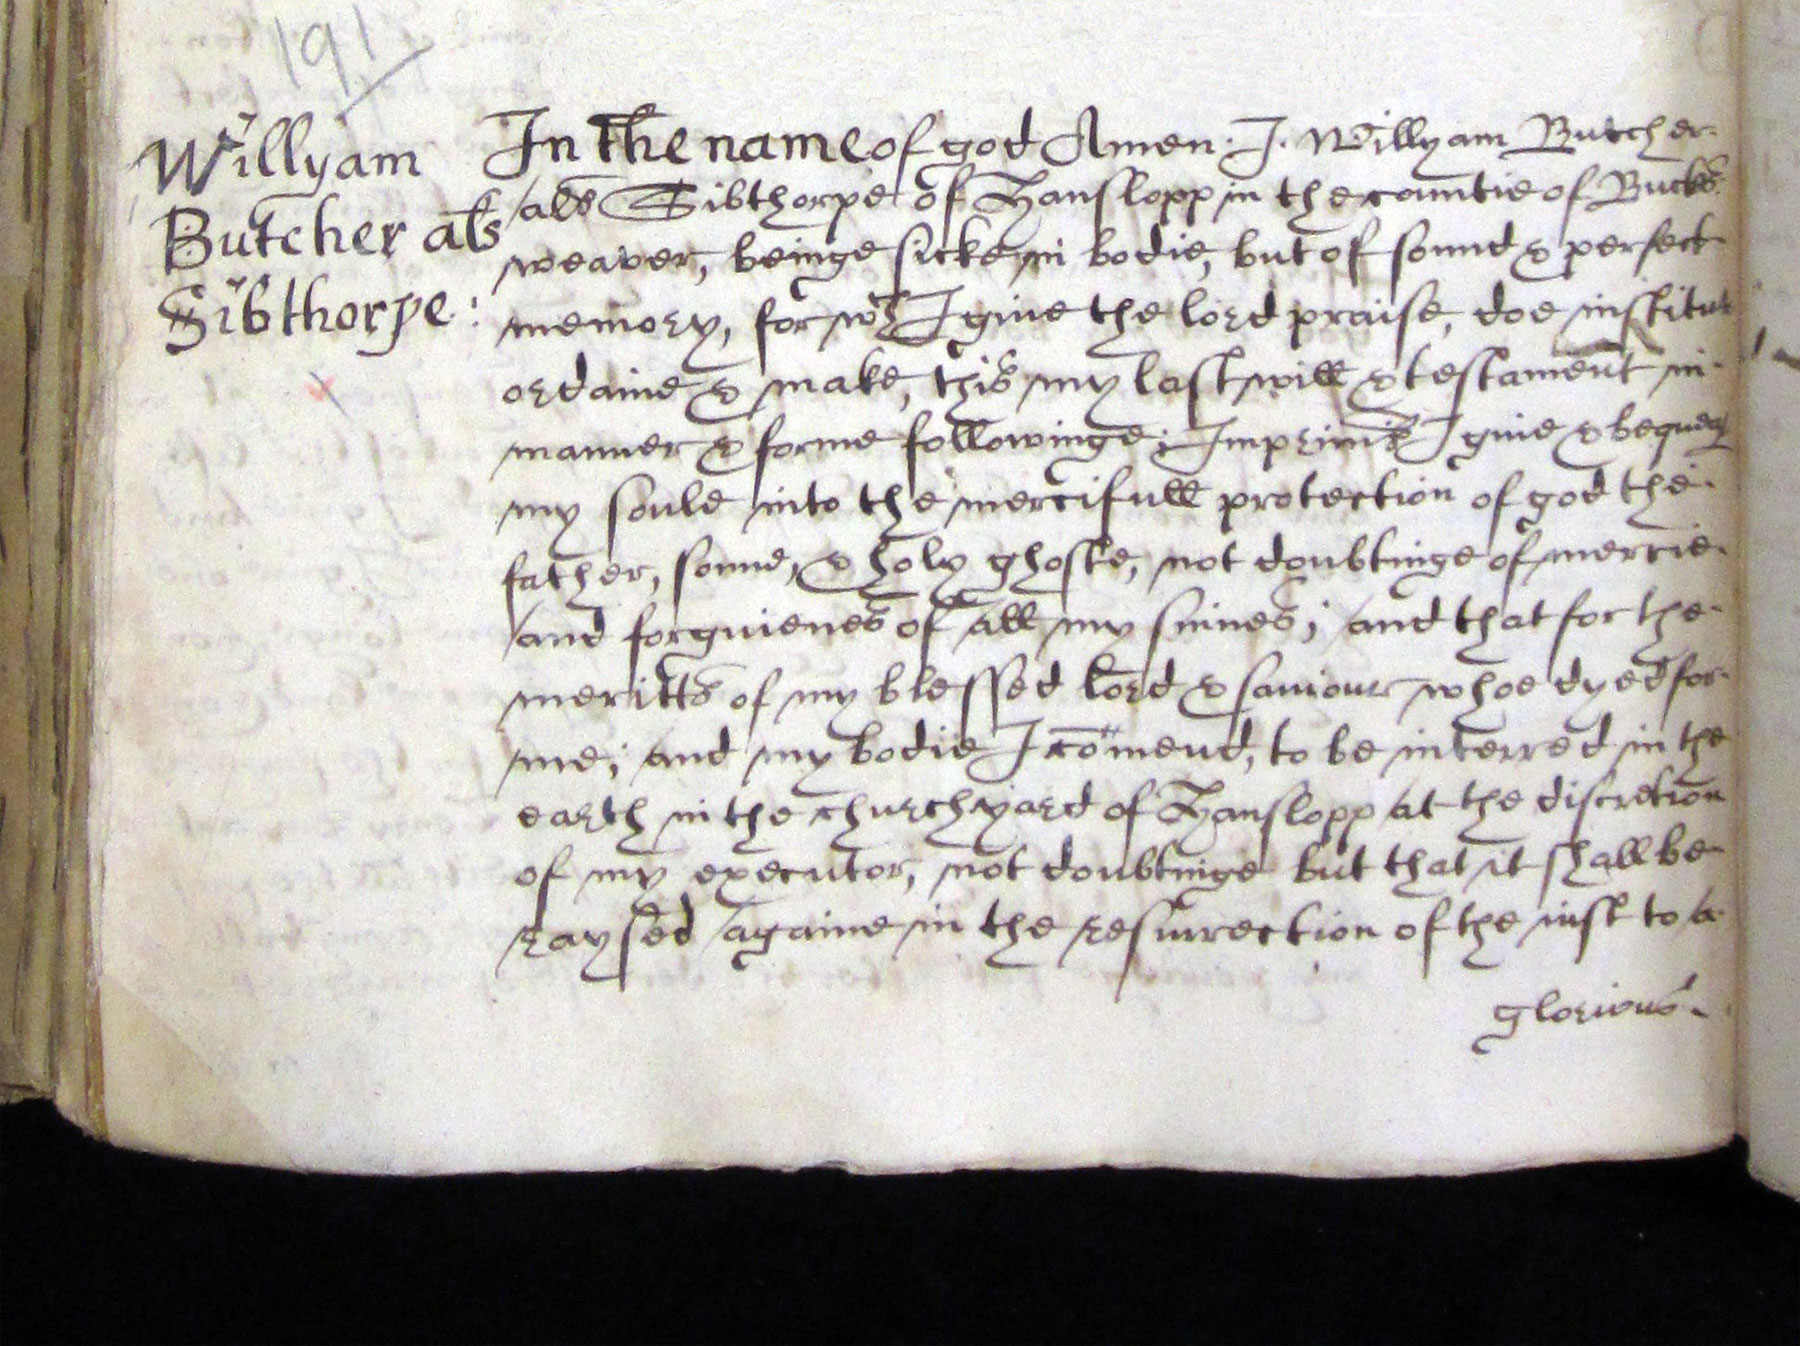 191
Willyam
Butcher als
Sibthorpe:
In the name of god Amen. I. Willyam Butcher
als Sibthorpe of Hanslopp in the countie of Bucks.
weaver, beinge sicke in bodie, but of sound & perfect
memory, for wch I give the lord praise, doe institut
ordaine & make, this my last will & testament in
manner & forme followinge; Imprimis I give & bequeath
my soule into the mercifull protection of god the
father, sonne, & holy ghoste, not doubtinge of mercie
and forguienes of all my sinnes; and that for the
meritts of my blessed lord & saviour whoe dyed for
me; and my bodie I comend, to be interred in the
earth in the churchyard of Hanslopp at the discretion
of my executor, not doubtinge but that it shall be
raysed againe in the resurrection of the iust to a
glorious